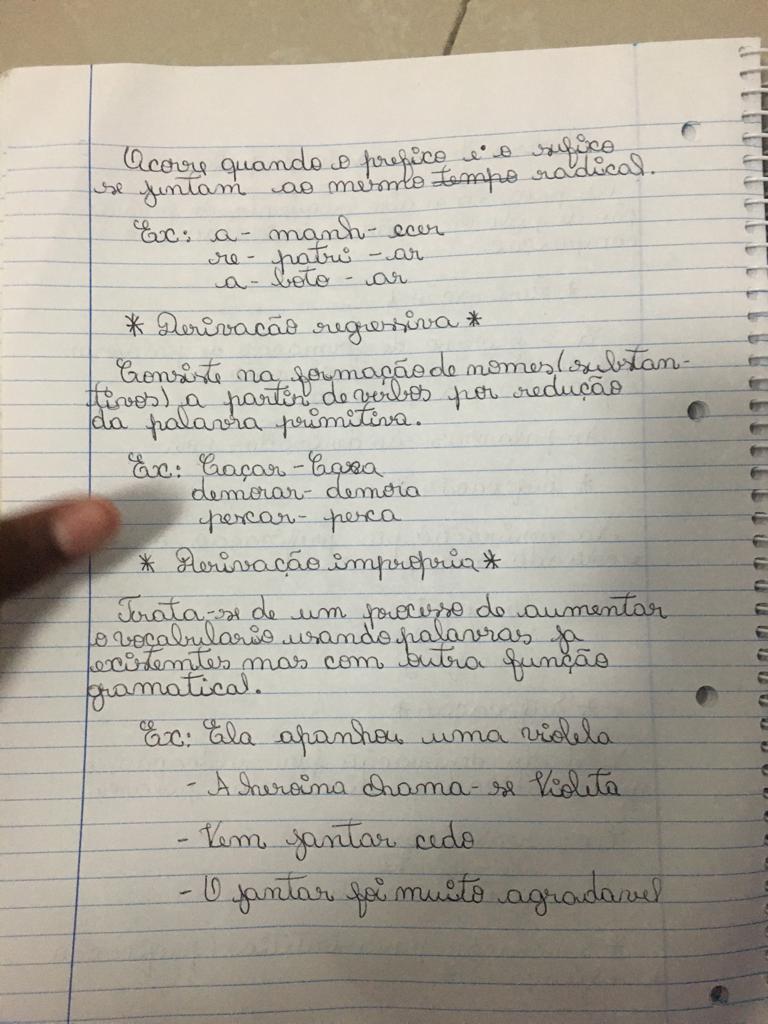 Ocorre quando o prefico e o sufico
se juntam ao mesmo tempo radical.
Ex: a- manh- ecer
re- patri - ar
a- boto - ar
* Derivacão regressiva *
Consiste na formação de nomes (substan-
tivos) a partir de verbos por redução
da palavra primitiva.
Ex: Caçar - Caça
demorar- demora
pescar- pesca
* Derivação impropria *
Trata-se de um processo de aumentar
o vocabulario usando palavras ja
existemtes mas com outra função
gramatical.
Ex: Ela apanhou uma violeta
- A heroina chama-se Violeta
- Vem jantar cedo
- O jantar foi muito agradavel